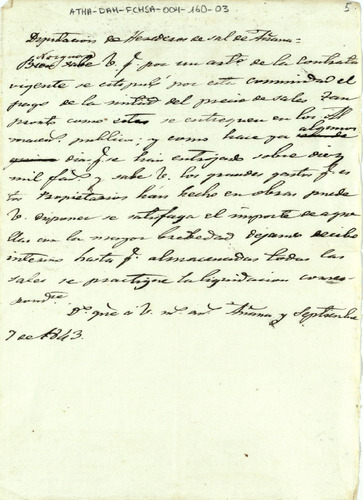 ATHA-DAH-FCHSA-004-160-03
5
Diputacion de Herederos de sal de Añana =
Bien sabe V. q.e por un arto de la contrata
vigente se estipuló por esta comunidad el
pago de la mitad del precio de sales tan
pronto como estas se entreguen en los Al
macen.s publico.s y como hace ya algunos
dias q.e se han entregado sobre diez
mil fan.s y sabe V. los grandes gastos q.e es
tos Propietarios han hecho en obras puede
V. disponer se satisfaga el importe de aque
llas con la mayor brebedad dejando recibo
interino hasta q.e almacenadas todas las
sales se practique la liquidacion corres
pond.te
D.s gue á V. m.s an.s Añana y Septiembre
7 de 1843.